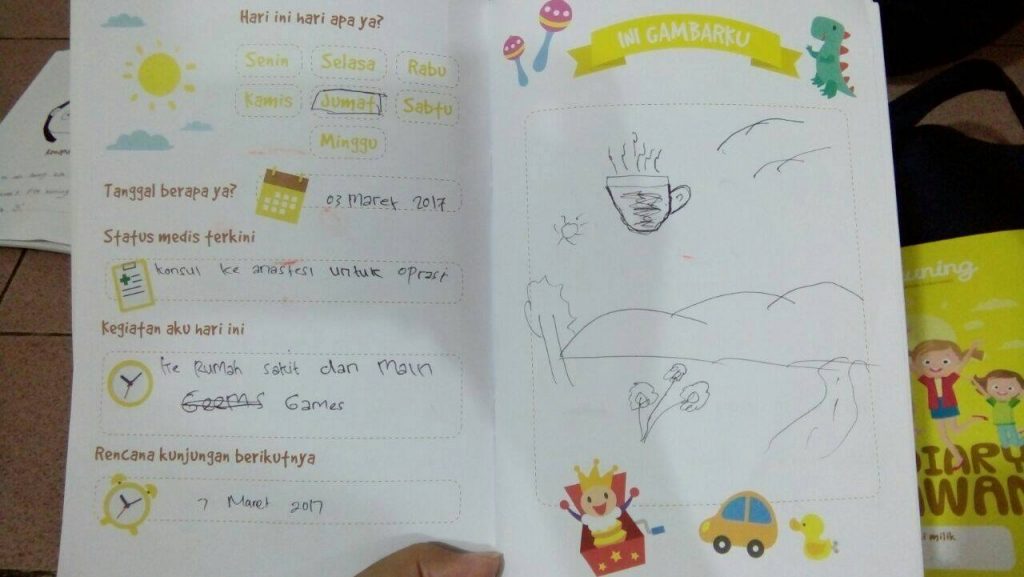 Hari ini hari apa ya?
Senin Selasa Rabu
Kamis Jumat Sabtu
Minggu
Tanggal berapa ya?
03 Maret 2017
Status medis terkini
konsul ke anastesi untuk oprasi
Kegiatan aku hari ini
ke Rumah sakit dan Main
Geems Games
Rencana kunjungan berikutnya
7 Maret 2017
INI GAMBARKU
uning
DIARY
AWAN
milik